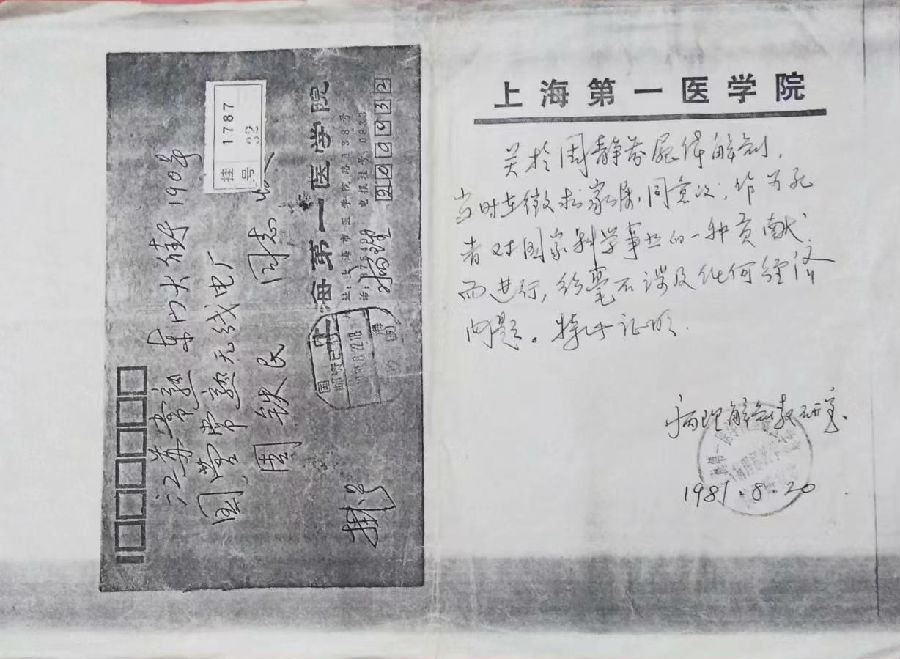 江苏常熟 东门大街190号
国营常熟无线电厂
周铁民 同志
挂号
挂号
1787
32
上海第一医学院
址:上海市医学院路138号
病理
200032
上海第一医学院
关于周静芬屍体解剖,
当时在徵求家属同意后,作为死
者对国家科学事业的一种贡献
而进行,丝毫不涉及任何经济
问题。特此证明.
病理解剖教研室.
1981.8.20